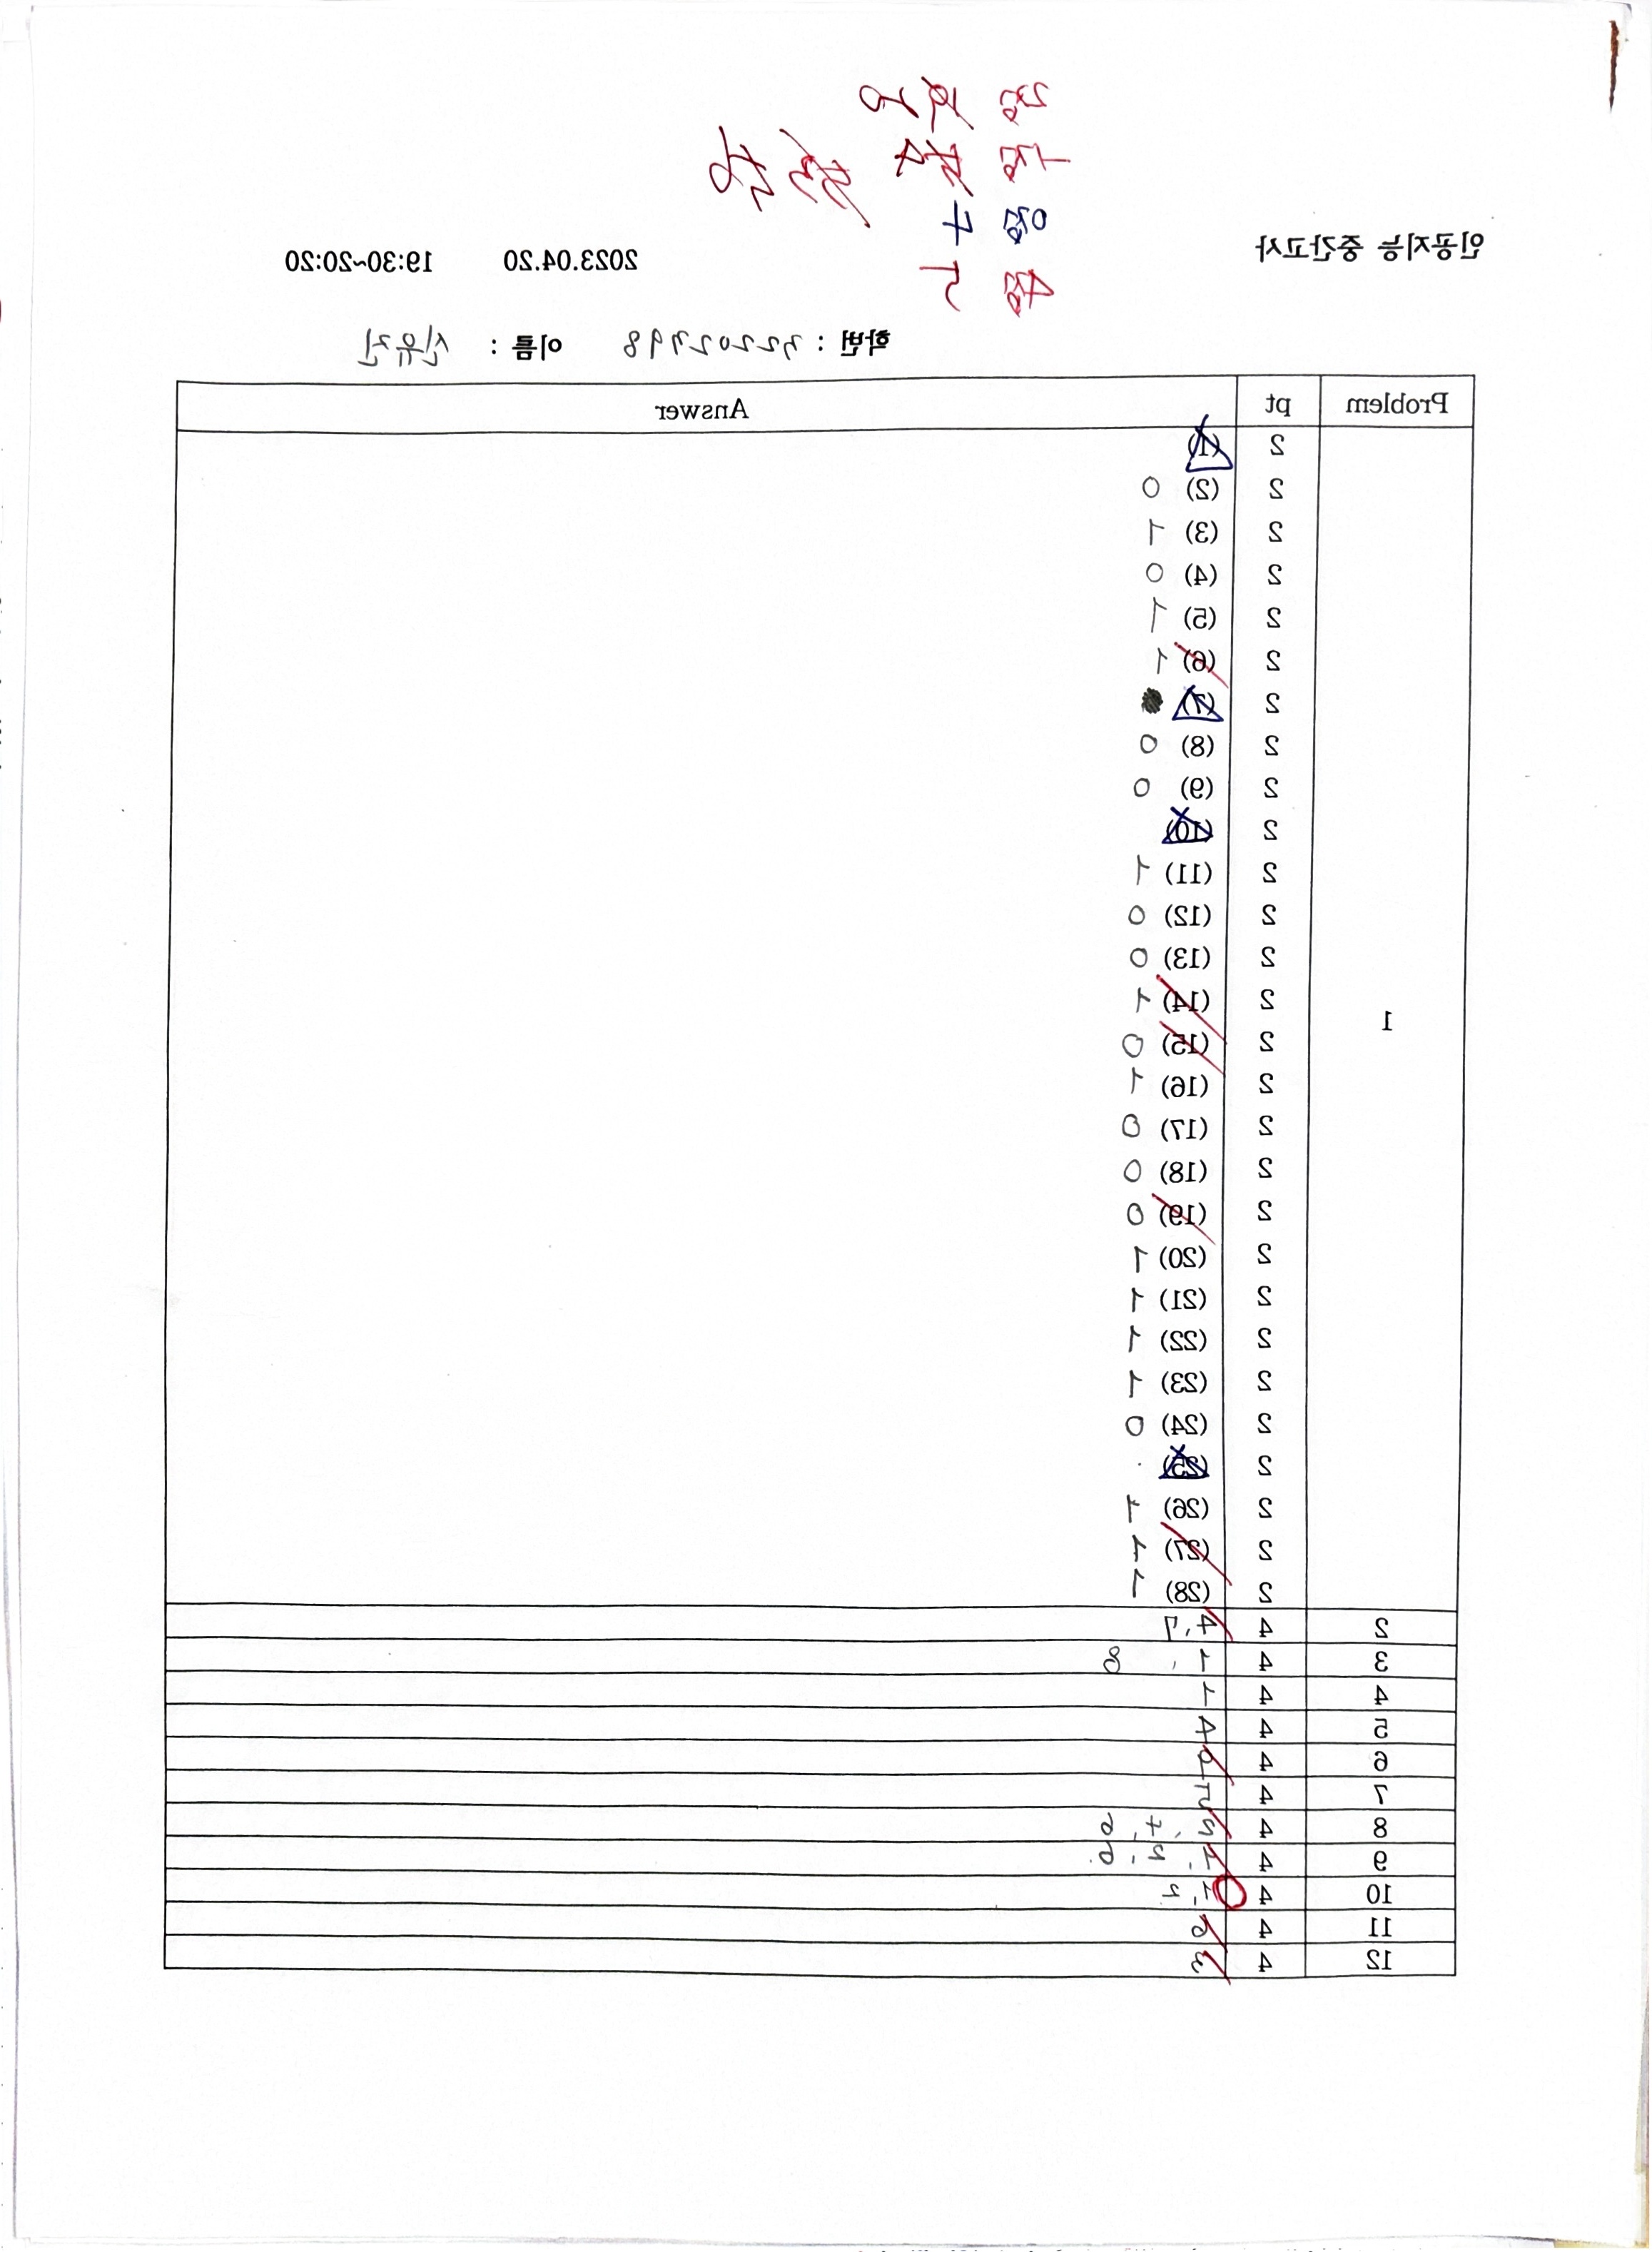 2점 20
1점 4
0점 7
4점 5
인공지능 중간고사 2023.04.20 19:30~20:20
학번 : 32202798 이름 : 신유진
Problem pt Answer
1
2 (1)
2 (2) 0
2 (3) 1
2 (4) 0
2 (5) 1
2 (6) 1
2 (7)
2 (8) 0
2 (9) 0
2 (10)
2 (11) 1
2 (12) 0
2 (13) 0
2 (14) 1
2 (15) 0
2 (16) 1
2 (17) 0
2 (18) 0
2 (19) 0
2 (20) 1
2 (21) 1
2 (22) 1
2 (23) 1
2 (24) 0
2 (25)
2 (26) 1
2 (27) 1
2 (28) 1
2 4 4, 7
3 4 1, 8
4 4 1
5 4 4
6 4 2
7 4 5
8 4 5, 7, 6
9 4 1, 5, 6
10 4 1, 5
11 4 6
12 4 3